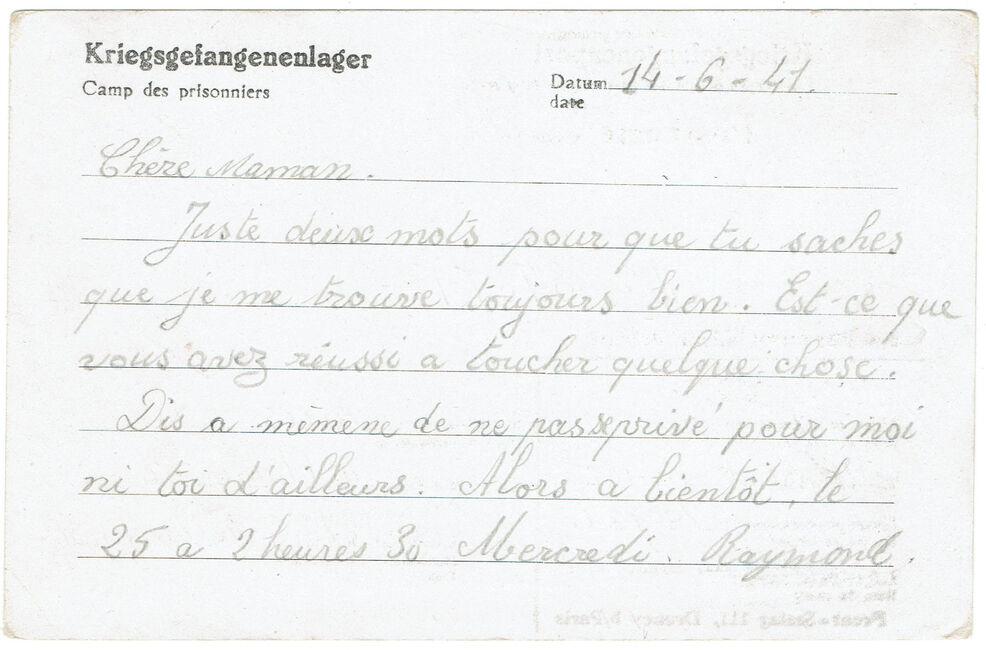 Kriegsgefangenenlager
Camp des prisonniers
Datum 14-6-41.
date
Chère Maman.
Juste deux mots pour que tu saches
que je me trouve toujours bien. Est-ce que
vous avez réussi a toucher quelque chose.
Dis a mèmene de ne passeprivé pour moi
ni toi d'ailleurs. Alors a bientôt, le
25 a 2 heures 30 Mercredi. Raymond.
Front-Stalag 111, Drancy b/Paris